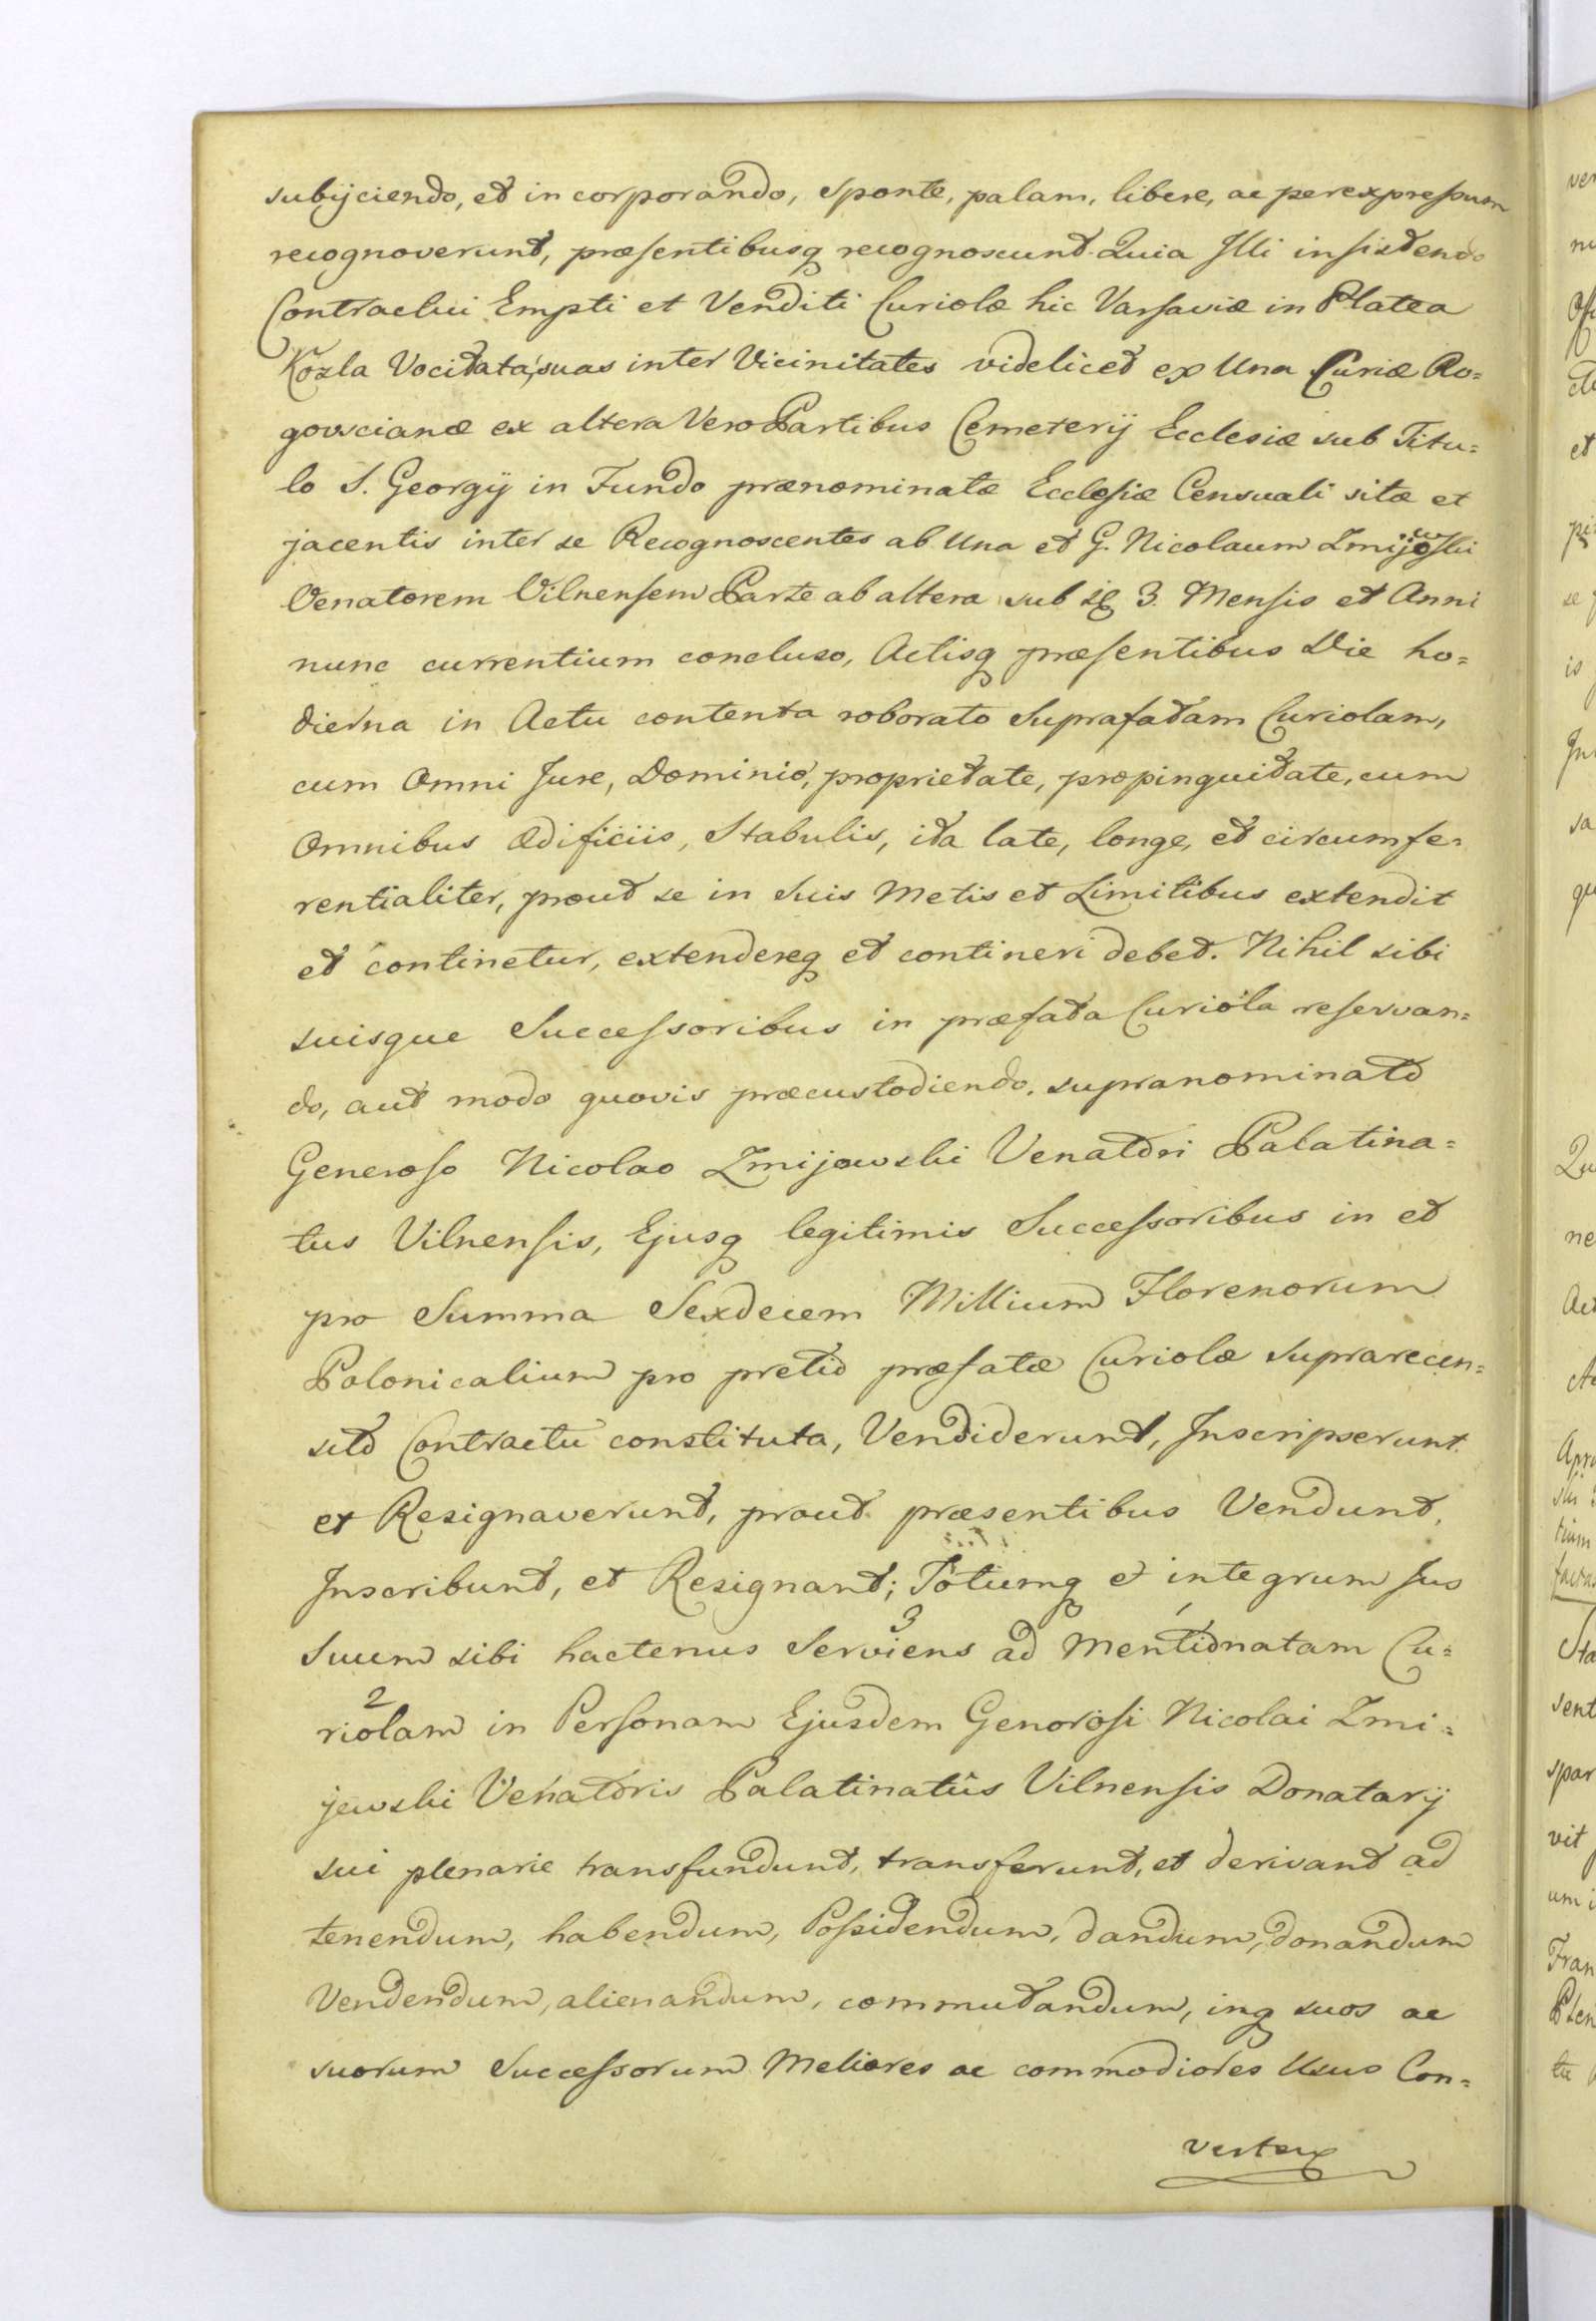 subijciendo, et in corporando, sponte, palam, libere, ac per expressum
recognoverunt, præsentibusq recognoscunt. Quia Illi insistendo
Contractui Empti et Venditi Curiolæ hic Varsaviæ in Platea
Kozla Vocitata, suas inter Vicinitates videlicet ex Una Curiæ Ro=
gowscianæ ex altera Vero Partibus Cemeterij Ecclesiæ sub Titu=
lo S. Georgij in Fundo prænominatæ Ecclesiæ Censuali sitæ et
jacentis inter se Recognoscentes ab Una et G. Nicolaum Zmijewski
Venatorem Vilnensem Parte ab altera sub 3. Mensis et Anni
nunc currentium concluso, Actisq præsentibus Die ho=
dierna in Actu contenta roborato Suprafatam Curiolam,
cum Omni Jure, Dominio, proprietate, propinquitate, cum
Omnibus Ædificiis, Stabulis, ita late, longe, et circumfe=
rentialiter, prout se in Suis Metis et Limitibus extendit
et continetur, extendereq et contineri debet. Nihil sibi
suisque Successoribus in præfata Curiola reservan=
do, aut modo quovis præcustodiendo, supranominato
Generoso Nicolao Zmijewski Venatori Palatina=
tus Vilnensis, Ejusq legitimis Successoribus in et
pro Summa Sexdecem Millium Florenorum
Polonicalium pro pretio præfatæ Curiolæ suprarecen=
sito Contractu constituta, Vendiderunt, Inscripserunt
et Resignaverunt, prout præsentibus Vendunt,
Inscribunt, et Resignant; Totumq et integrum Jus
Suum sibi hactenus Serviens 3 ad Mentionatam 1 Cu=
riolam 2 in Personam Ejusdem Generosi Nicolai Zmi=
jewski Venatoris Palatinatûs Vilnensis Donatarij
sui plenarie transfundunt, transferunt, et derivant ad
tenendum, habendum, Possidendum, dandum, donandum
Vendendum, alienandum, commutandum, inq suos ac
suorum Successorum Meliores ac commodiores Usus Con=